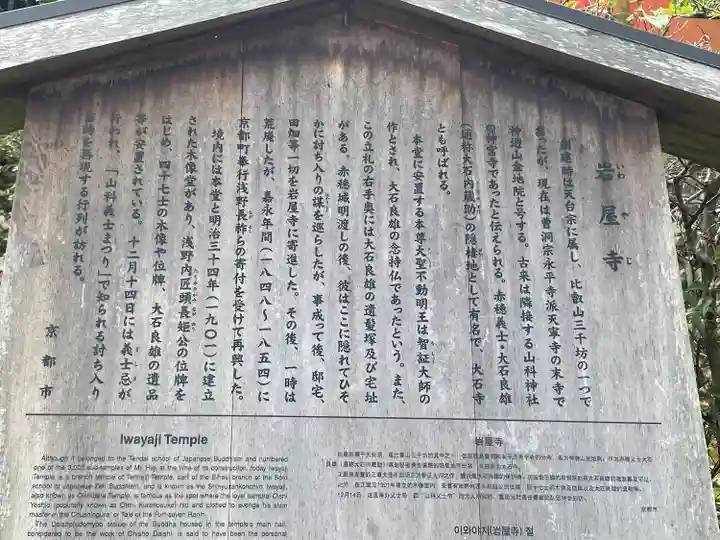 岩屋寺
いわ や じ
創建時は天台宗に属し、比叡山三千坊の一つで
あったが、現在は曹洞宗永平寺派天寧寺の末寺で
神遊山金地院と号する。古来は隣接する山科神社
の神宮寺であったと伝えられる。赤穂義士・大石良雄
(通称大石内蔵助)の隠棲地として有名で、大石寺
とも呼ばれる。
本堂に安置する本尊大聖不動明王は智証大師の
作とされ、大石良雄の念持仏であったという。また、
この立札の右手奥には大石良雄の遺髪塚及び宅址
がある。赤穂城明渡しの後、彼はここに隠れてひそ
かに討ち入りの謀を巡らしたが、事成って後、邸宅、
田畑等一切を岩屋寺に寄進した。その後、一時は
荒廃したが、嘉永年間(一八四八〜一八五四)に
京都町奉行浅野長祚らの寄付を受けて再興した。
境内には本堂と明治三十四年(一九〇一)に建立
された木像堂があり、浅野内匠頭長矩公の位牌を
はじめ、四十七士の木像や位牌、大石良雄の遺品
等が安置されている。十二月十四日には義士忌が
行われ、「山科義士まつり」で知られる討ち入り
装束を再現する行列が訪れる。
京都市
Iwayaji Temple
Although it belonged to the Tendai school of Japanese Buddhism and numbered
one of the 3,000 sub-temples of Mt. Hiei at the time of its construction, today Iwayaji
Temple is a branch temple of Tenneiji Temple, part of the Eihei branch of the Soto
school of Japanese Zen Buddhism, and is known as the Shinyusankonchiin. Iwayaji,
also known as Oishidera Temple, is famous as the spot where the loyal samurai Oishi
Yoshio (popularly known as Oishi Kuranosuke) hid and plotted to avenge his slain
master in the Chushingura or Tale of the Forty-seven Ronin.
The Daishofudomyoo statue of the Buddha housed in the temple's main hall,
considered to be the work of Chisho Daishi, is said to have been the personal
岩屋寺
京都市
이와야지(岩屋寺) 절